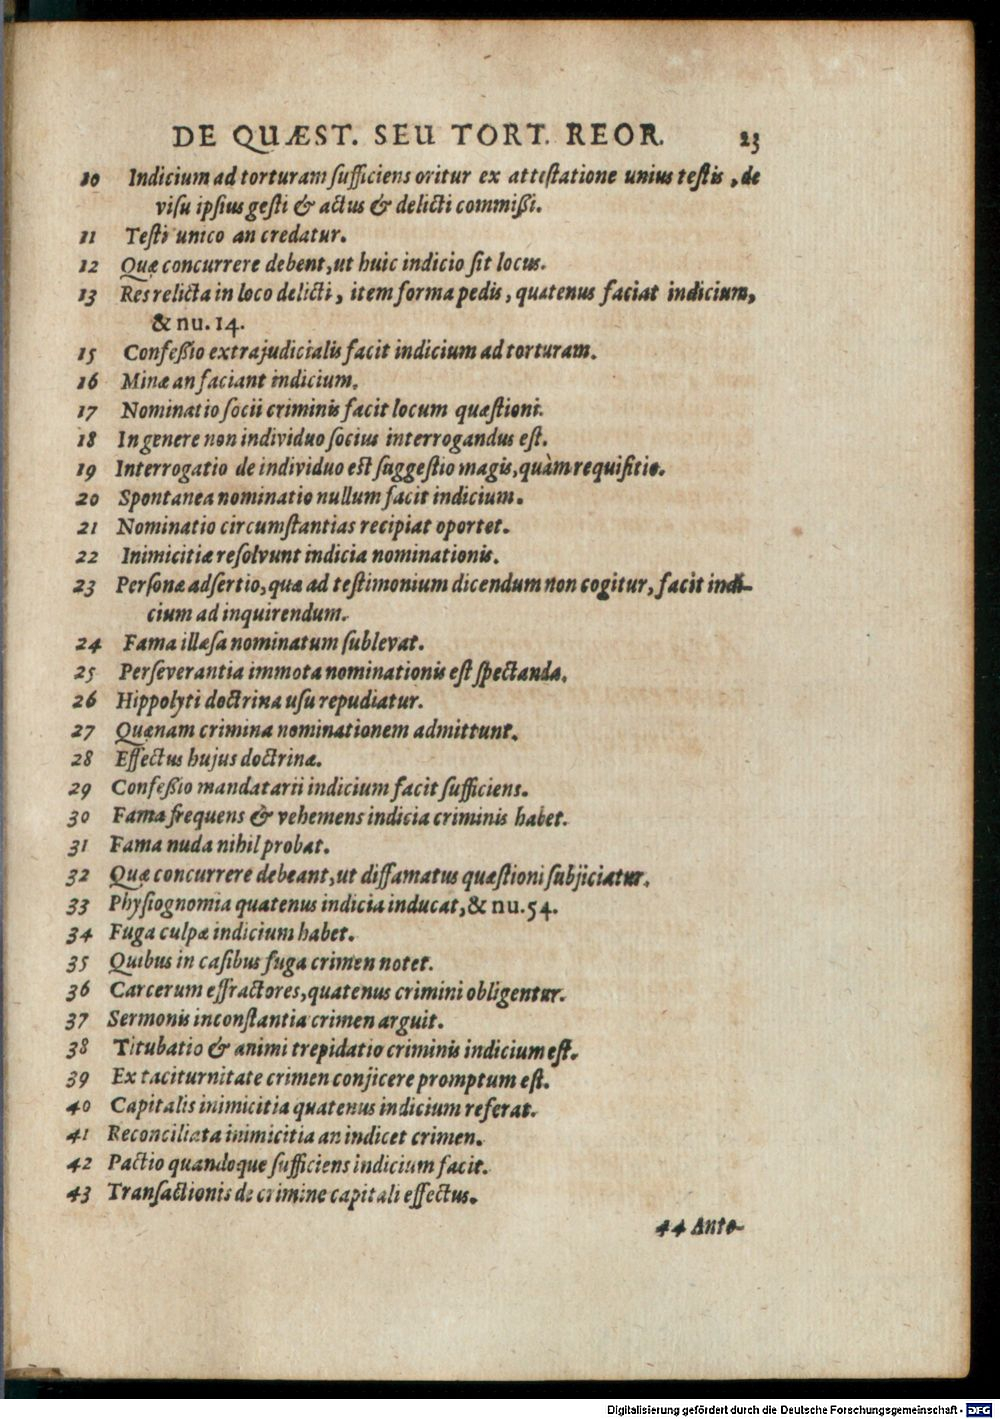 DE QUÆST. SEU TORT. REOR. 23
10 Indicium ad torturam ſufficiens oritur ex atteſtatione unius teſtis, de
viſu ipſius geſti & actus & delicti commißi.
11 Teſti unico an credatur.
12 Quæ concurrere debent, ut huic indicio ſit locus.
13 Res relicta in loco delicti, item forma pedis, quatenus faciat indicium,
& nu. 14.
15 Confeßio extrajudicialis facit indicium ad torturam.
16 Minæ an faciant indicium.
17 Nominatio ſocii criminis facit locum quæſtioni.
18 In genere non individuo ſocius interrogandus eſt.
19 Interrogatio de individuo eſt ſuggeſtio magis, quàm requiſitio.
20 Spontanea nominatio nullum facit indicium.
21 Nominatio circumſtantias recipiat oportet.
22 Inimicitiæ reſolvunt indicia nominationis.
23 Perſonæ adſertio, quæ ad teſtimonium dicendum non cogitur, facit indi-
cium ad inquirendum.
24 Fama illæſa nominatum ſublevat.
25 Perſeverantia immota nominationis eſt ſpectanda.
26 Hippolyti doctrina uſu repudiatur.
27 Quænam crimina nominationem admittunt.
28 Effectus hujus doctrinæ.
29 Confeßio mandatarii indicium facit ſufficiens.
30 Fama frequens & vehemens indicia criminis habet.
31 Fama nuda nihil probat.
32 Quæ concurrere debeant, ut diffamatus quæſtioni ſubjiciatur.
33 Phyſiognomia quatenus indicia inducat, & nu. 54.
34 Fuga culpæ indicium habet.
35 Quibus in caſibus fuga crimen notet.
36 Carcerum effractores, quatenus crimini obligentur.
37 Sermonis inconſtantia crimen arguit.
38 Titubatio & animi trepidatio criminis indicium eſt.
39 Ex taciturnitate crimen conjicere promptum eſt.
40 Capitalis inimicitia quatenus indicium referat.
41 Reconciliata inimicitia an indicet crimen.
42 Pactio quandoque ſufficiens indicium facit.
43 Tranſactionis de crimine capitali effectus.
44 Anto-
Digitalisierung gefördert durch die Deutsche Forschungsgemeinschaft - DFG